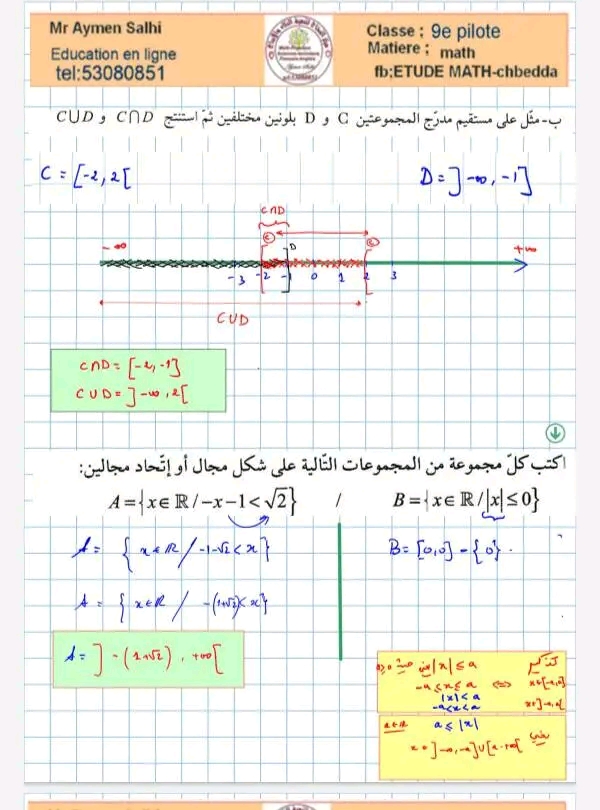 Mr Aymen Salhi
Education en ligne
tel:53080851
Classe ; 9e pilote
Matiere ; math
fb:ETUDE MATH-chbedda
ب-مثّل على مستقيم مدرّج المجموعتين C و D بلونين مختلفين ثمّ استنتج C∩D و C∪D
C = [-2, 2[
D = ]-∞, -1]
C∩D
D
-∞
+∞
-3 -2 -1 0 1 2 3
C∪D
C∩D = [-2, -1]
C∪D = ]-∞, 2[
اكتب كلّ مجموعة من المجموعات التّالية على شكل مجال أو إتّحاد مجالين:
A={x∈ℝ/-x-1<√2} / B={x∈ℝ/|x|≤0}
A = { x∈ℝ / -1-√2 < x }
B = [0,0] = {0}.
A = { x∈ℝ / -(1+√2) < x }
A = ]-(1+√2), +∞[
تذكير
|x| ≤ a
-a ≤ x ≤ a ⇔ x∈[-a,a]
|x| < a
-a<x<a x∈]-a,a[
a ≤ |x|
يعني
x∈]-∞,-a]∪[a,+∞[
Mr Aymen Salhi